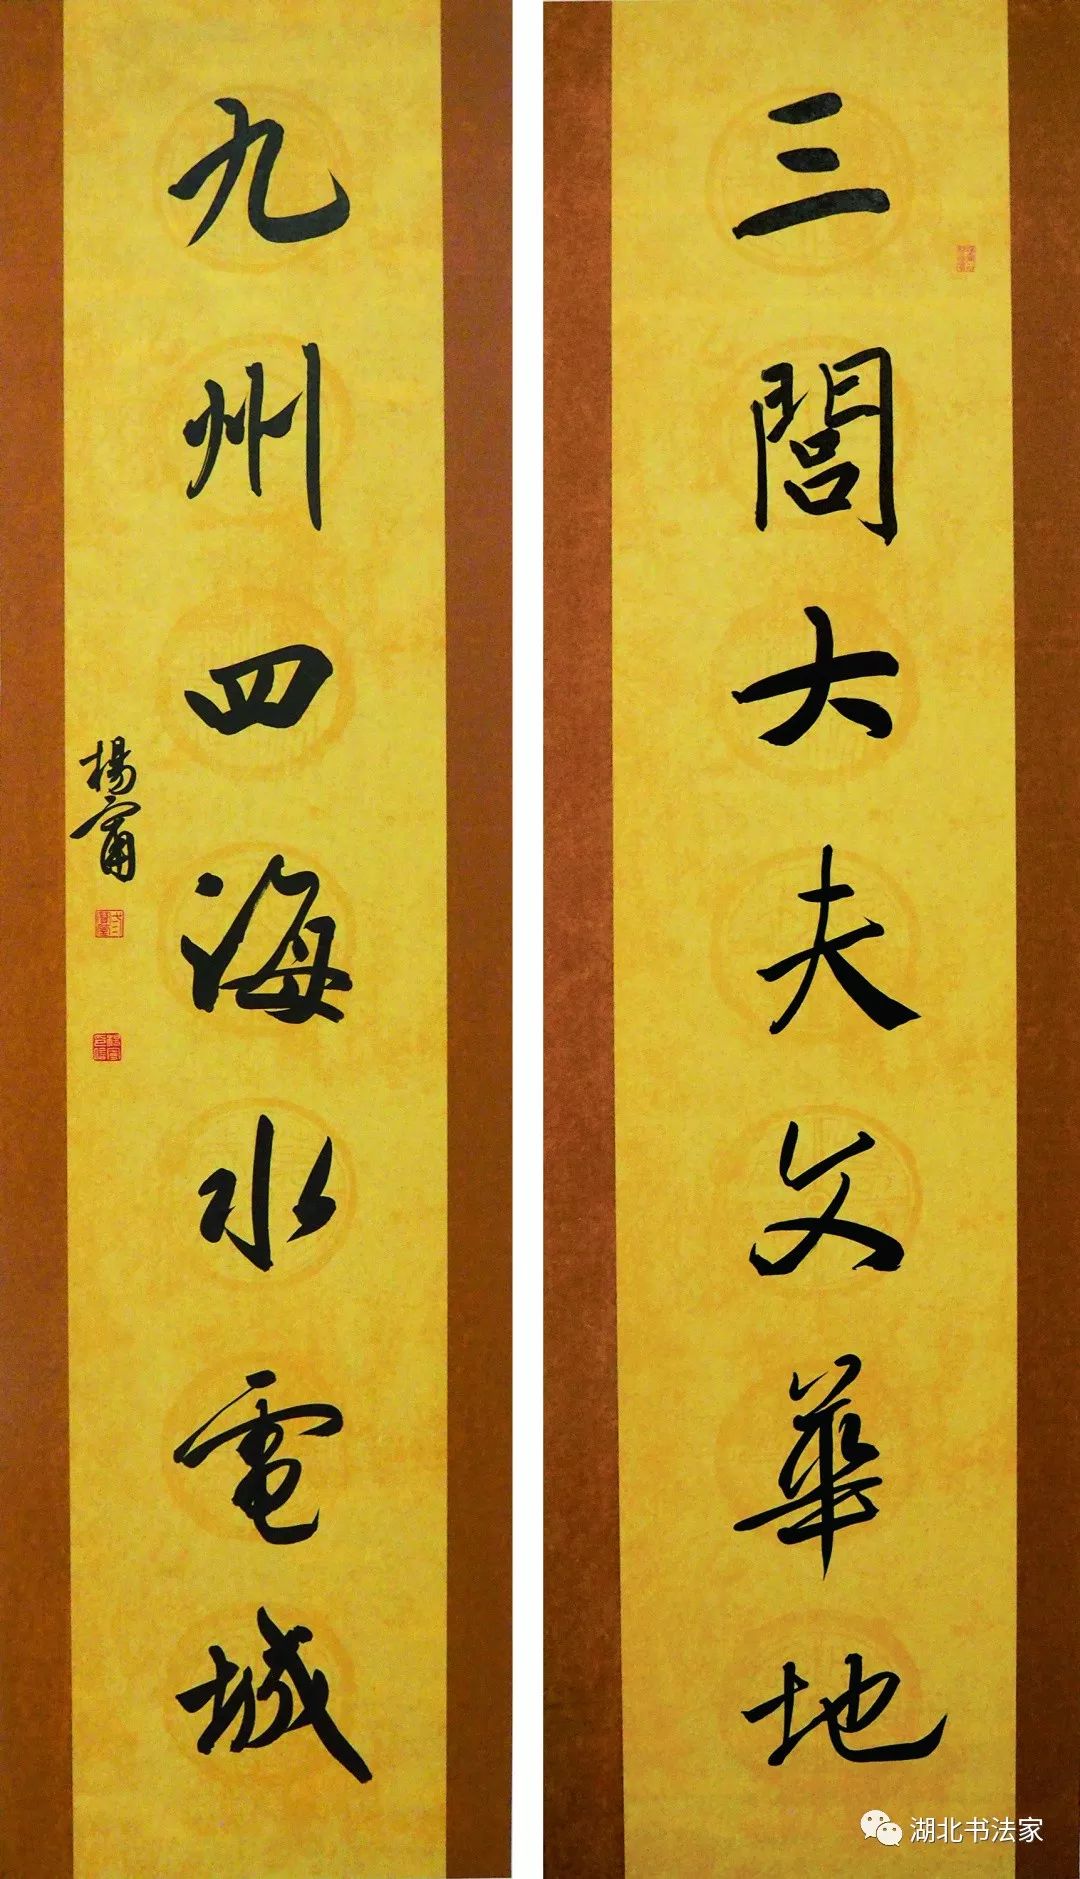 三閭大夫文華地
九州四海水電城
楊甯
湖北书法家